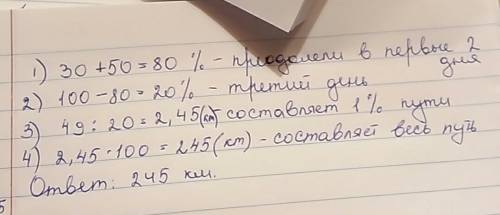 1) 30+50=80 % - приодолели в первые 2 дня
2) 100-80=20% - третий день
3) 49:20=2,45(км) составляет 1% пути
4) 2,45·100=245(км) - составляет весь путь
Ответ: 245 км.